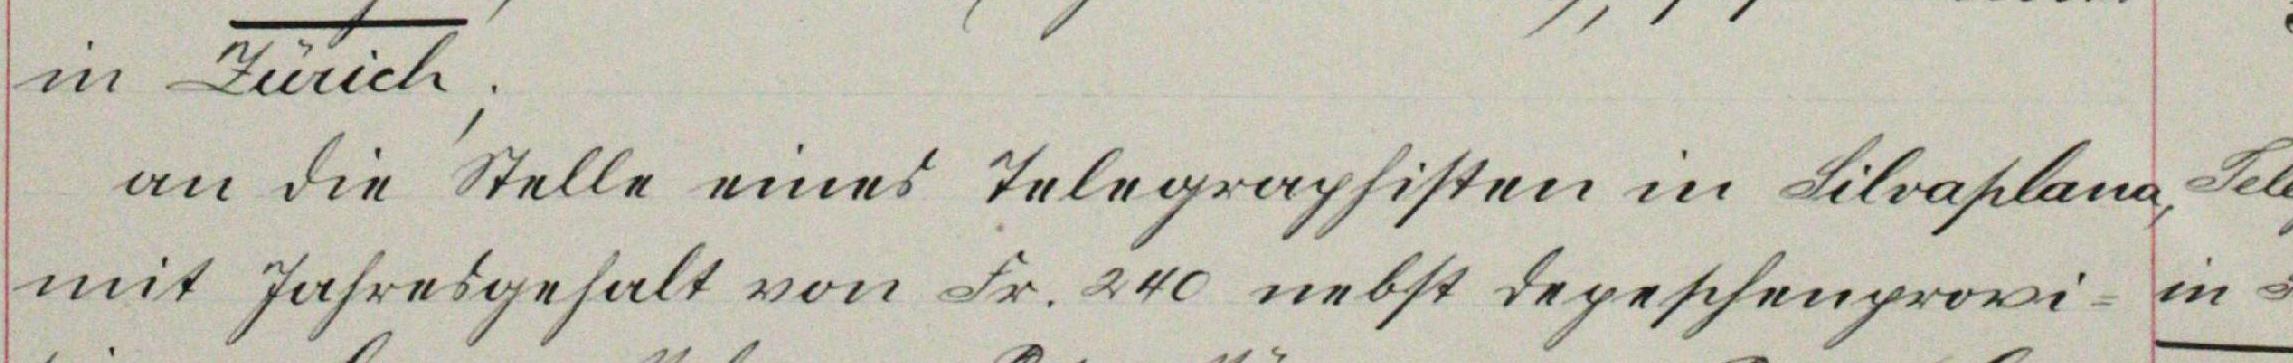 in Zürich;
an die Stelle eines Telegraphisten in Silvaplana,
mit Jahresgehalt von Fr. 240 nebst Depeschenprovi-
Tele
in